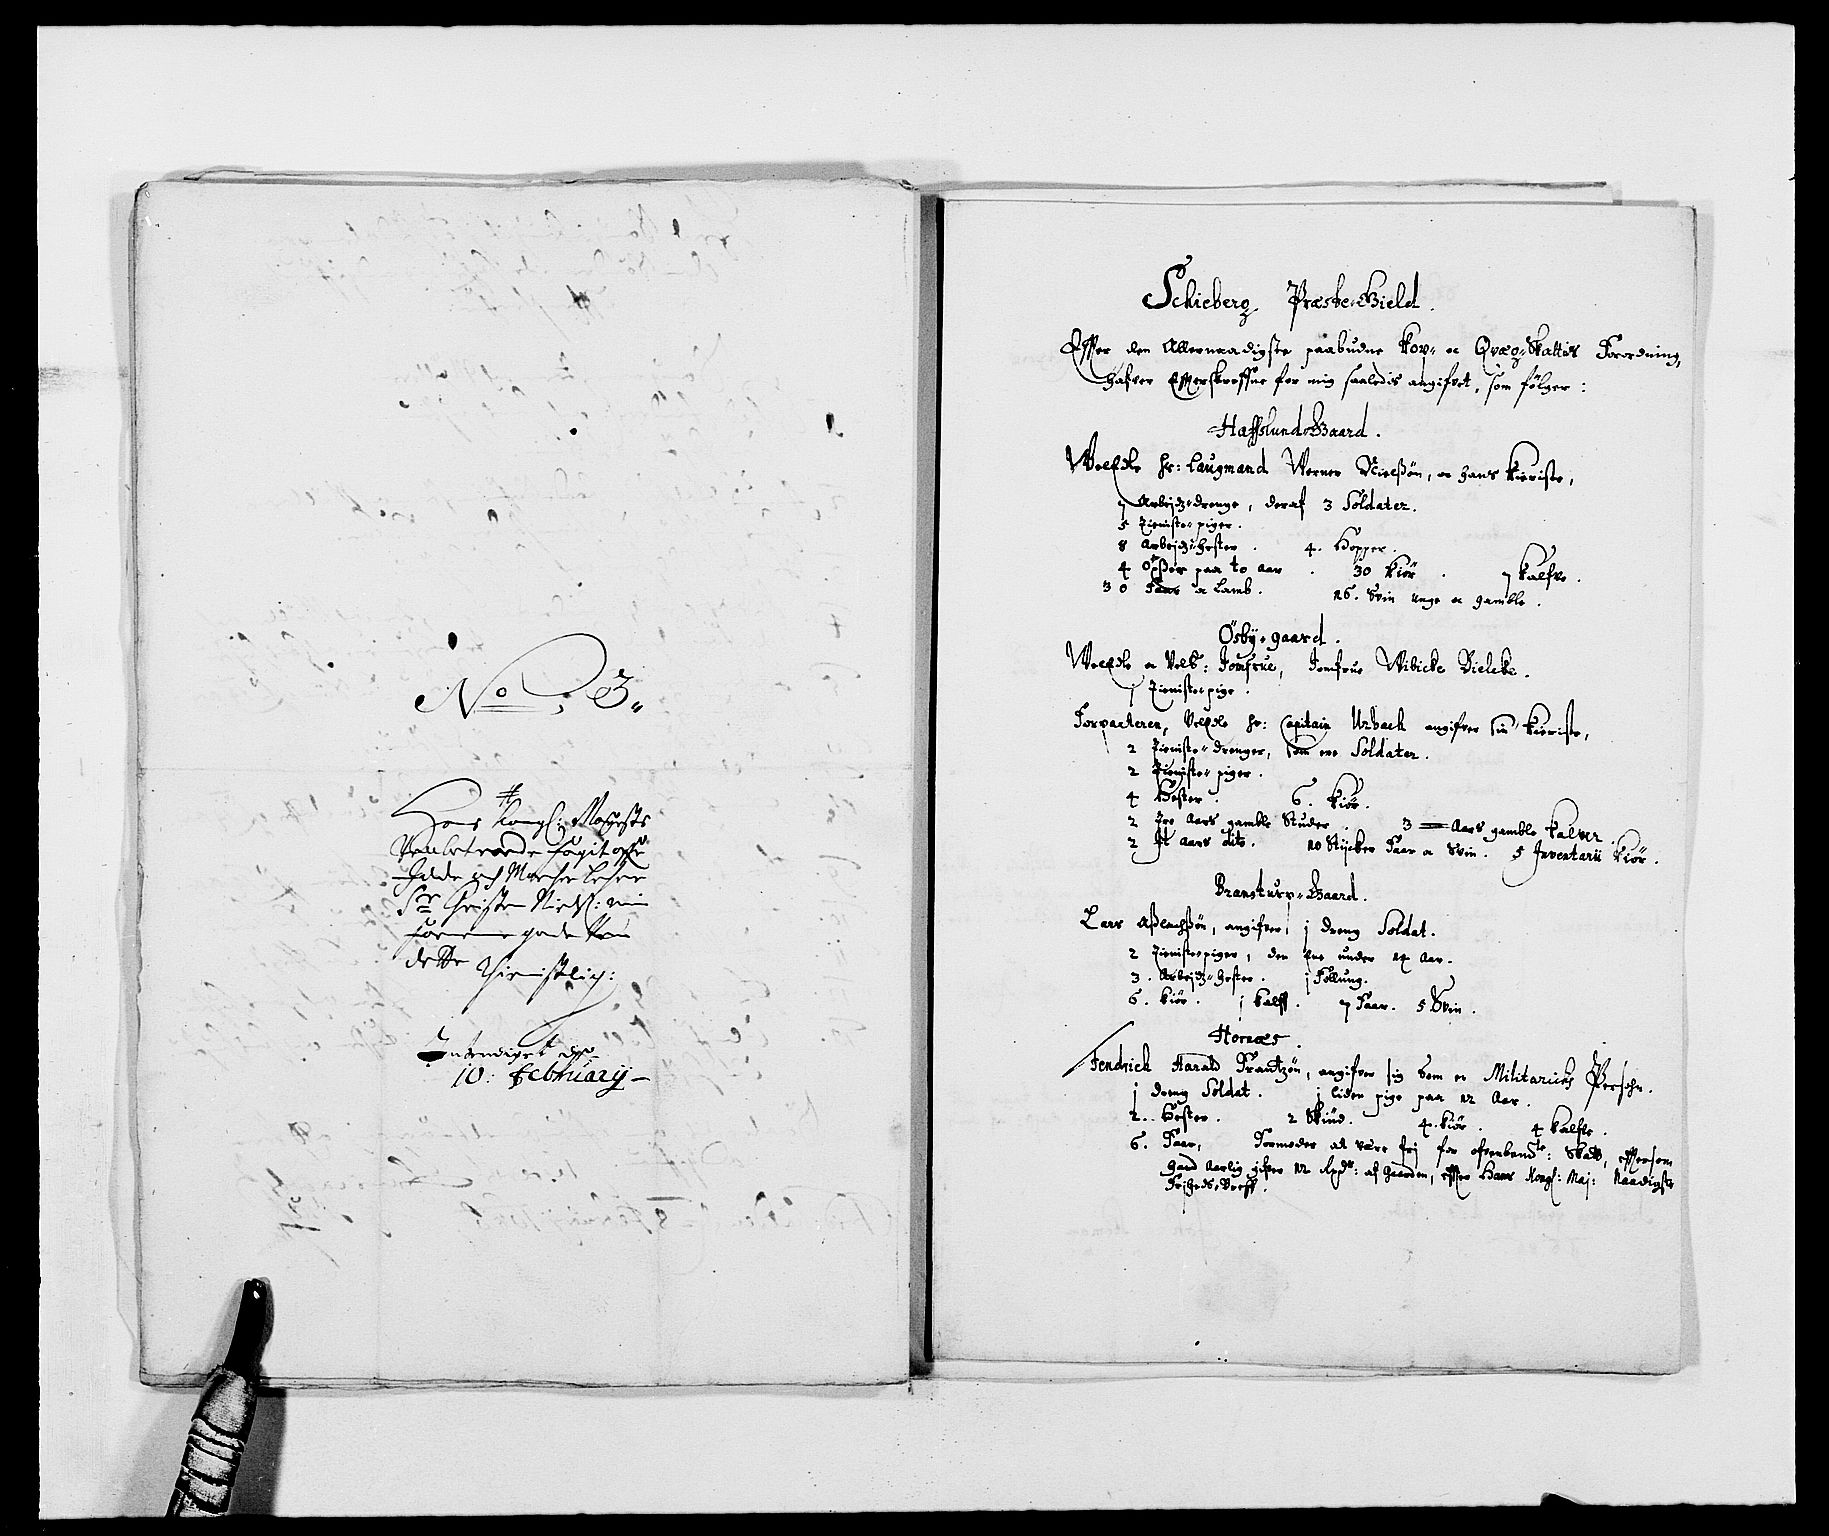 No. 3.
Hans Kongl: Mayestts
Velbetroede fogit offr
Idde och Marcher Lehne
Sr Christen Nielß: min
gode Ven
dette thienstlig:
Indleveret dend
10: February
Schieberg Præste-Gield.
Effter den Allernaadigste paabudne Kop- oc Qvæg-Skattis Forordning,
hafver Effterskreffne for mig saaledis angifvet, som følger:
Haffslund-Gaard.
WelEdle Hr: Laugmand Werner Nielßøn, oc hans Kieriste,
7 Arbejdz-drenge, deraf 3 Soldater.
5 Tieniste-piger.
8 Arbejdz-hester. 4. Hopper.
4 Oxßer paa to Aar. 30 Kiør. 7 Kalfve.
30 Faar oc Lamb. 26. Svin unge oc gamble.
Osby-gaard.
WelEdle oc Velb: Jomfrue, Jomfrue Wibicke Bielcke.
j Tieniste pige.
Forpacteren, VelEdle Hr: Capitain Urbach angifver sin Kieriste,
2 Tieniste-drenger, som ere Soldater.
2 Tieniste-piger.
4 Hester. 6. Kiør.
2 Tre Aars gamble Studer. 3 Aars gamble Kalver.
2 It Aars dito. 20 Stycker Faar oc Svin. 5 Inventarii Kiør.
Bransturp-Gaard.
Lars Aßlachßøn, angifver j dreng Soldat.
2 Tienistepiger, den ene under 14 Aar.
3. Arbejdz-hester. j Føllung.
6. Kiør. j Kalff. 7 Faar. 5 Svin.
Hornæs.
Fendrich Harald Frantzøn, angifver sig som en Militarisch Persohn.
j dreng Soldat. j liden pige paa 12 Aar.
2.. Hester. 2 Stüd. 4. Kiør. 4 Kalfve.
6. Faar, Formoder at være frj for ofvenbemte: Skatt, efftersom
hand Aarlig gifver 12 Rxdr: af Gaarden, effter Hans Kongl: Maj: Naadigste
Friheds-Breff.